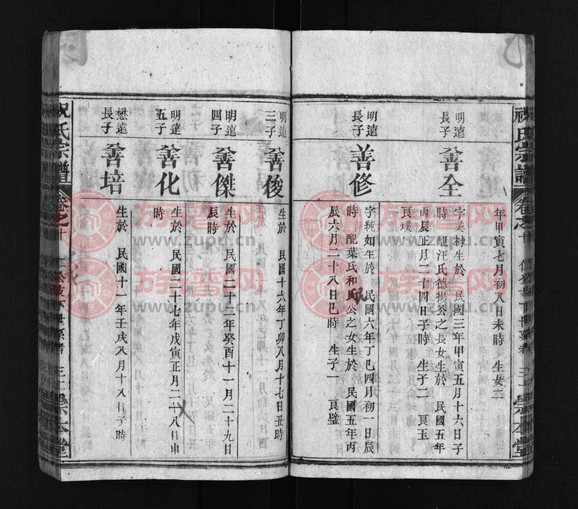 祝氏宗譜
卷之十
崇本堂
年甲寅七月初八日未時 生女二
明遠長子
善全
字美材生於 民國三年甲寅五月十六日子
時 配汪氏德楊公之長女生於 民國五年
丙辰正月二十四日子時 生子二 良玉
良璞
明遠長子
善修
字穗如生於 民國六年丁巳四月初一日辰
時 配葉氏和公之女生於 民國五年丙
辰六月二十八日巳時 生子一 良璧
明遠三子
善俊
生於 民國十六年丁卯八月十七日丑時
明遠四子
善傑
生於 民國二十二年癸酉十一月二十九日
辰時
明遠五子
善化
生於 民國二十七年戊寅正月二十八日申
時
懋遠長子
善培
生於 民國十一年壬戌八月十八日子時
祝氏宗譜
卷之十
崇本堂
族譜网
www.zupu.cn